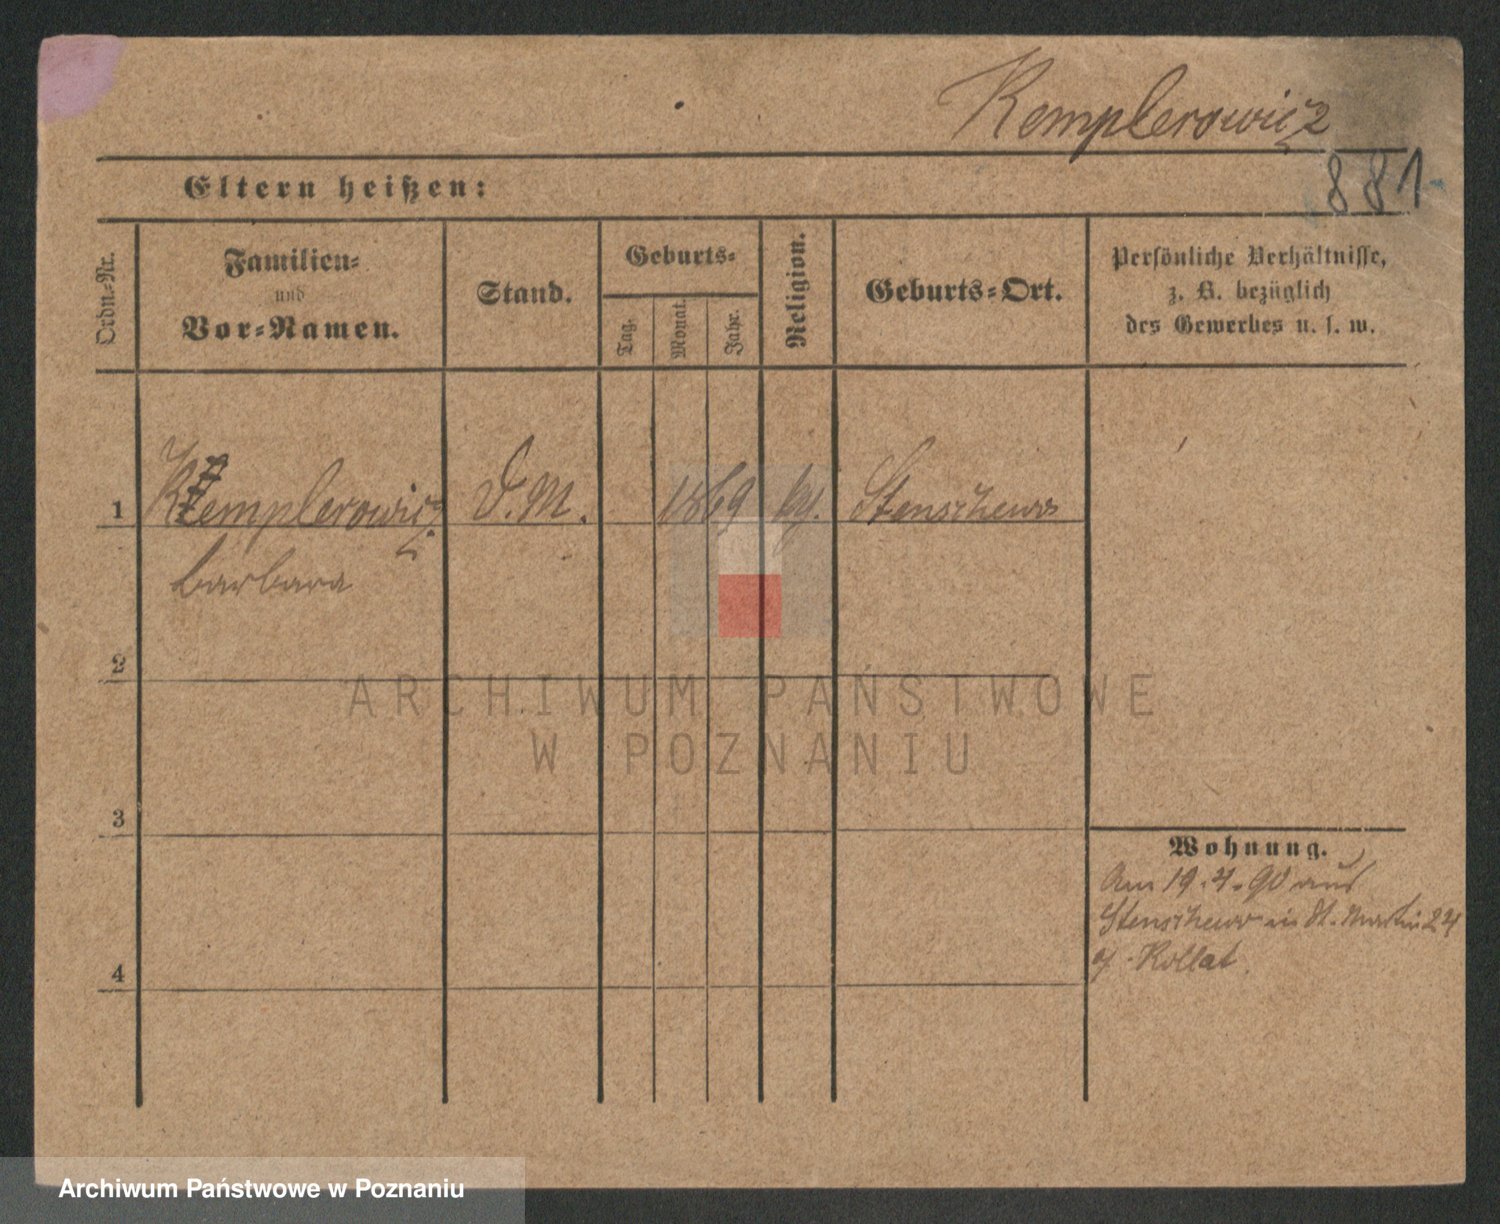 Kemplerowicz
881
Eltern heißen:
Ordn.-Nr.
Familien-
und
Vor-Namen.
Stand.
Geburts-
Tag.
Monat.
Jahr.
Religion.
Geburts-Ort.
Persönliche Verhältnisse,
z. B. bezüglich
des Gewerbes u. s. w.
1
Kemplerowicz D.M. 1869 Stenschewo
barbara
2
3
4
Wohnung.
Am 19.4.90 aus
Stenschewo in St. Martin 24
Kollat
ARCHIWUM PAŃSTWOWE
W POZNANIU
Archiwum Państwowe w Poznaniu